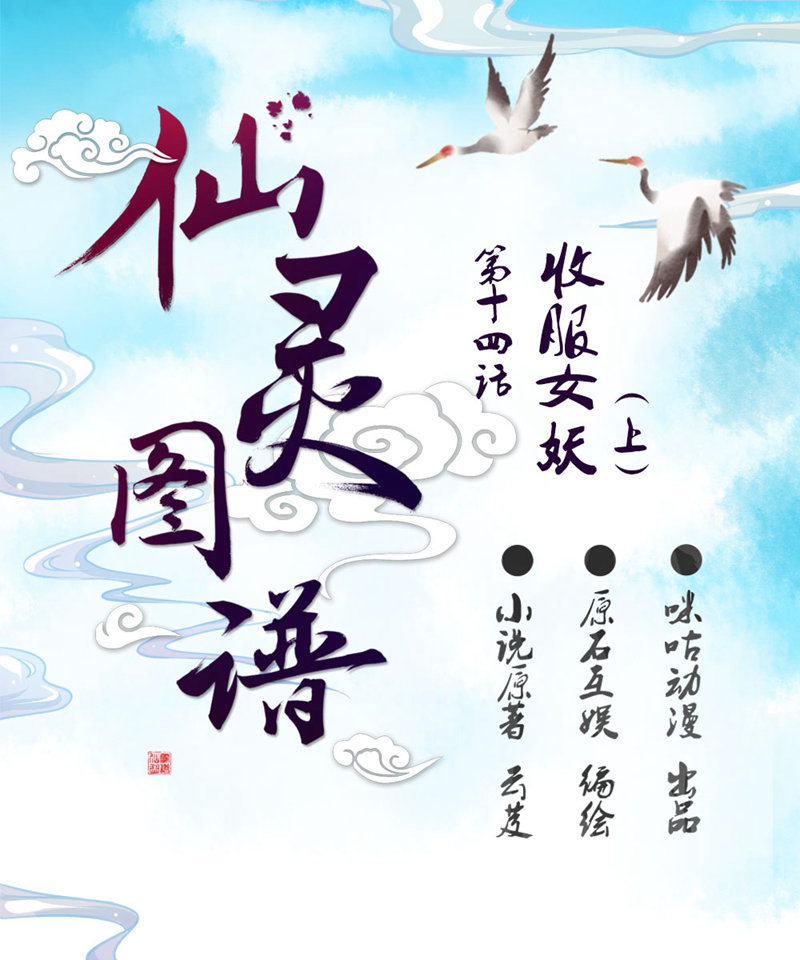 仙灵图谱
第十四话
收服女妖
（上）
咪咕动漫 出品
原石互娱 编绘
小说原著 云芨